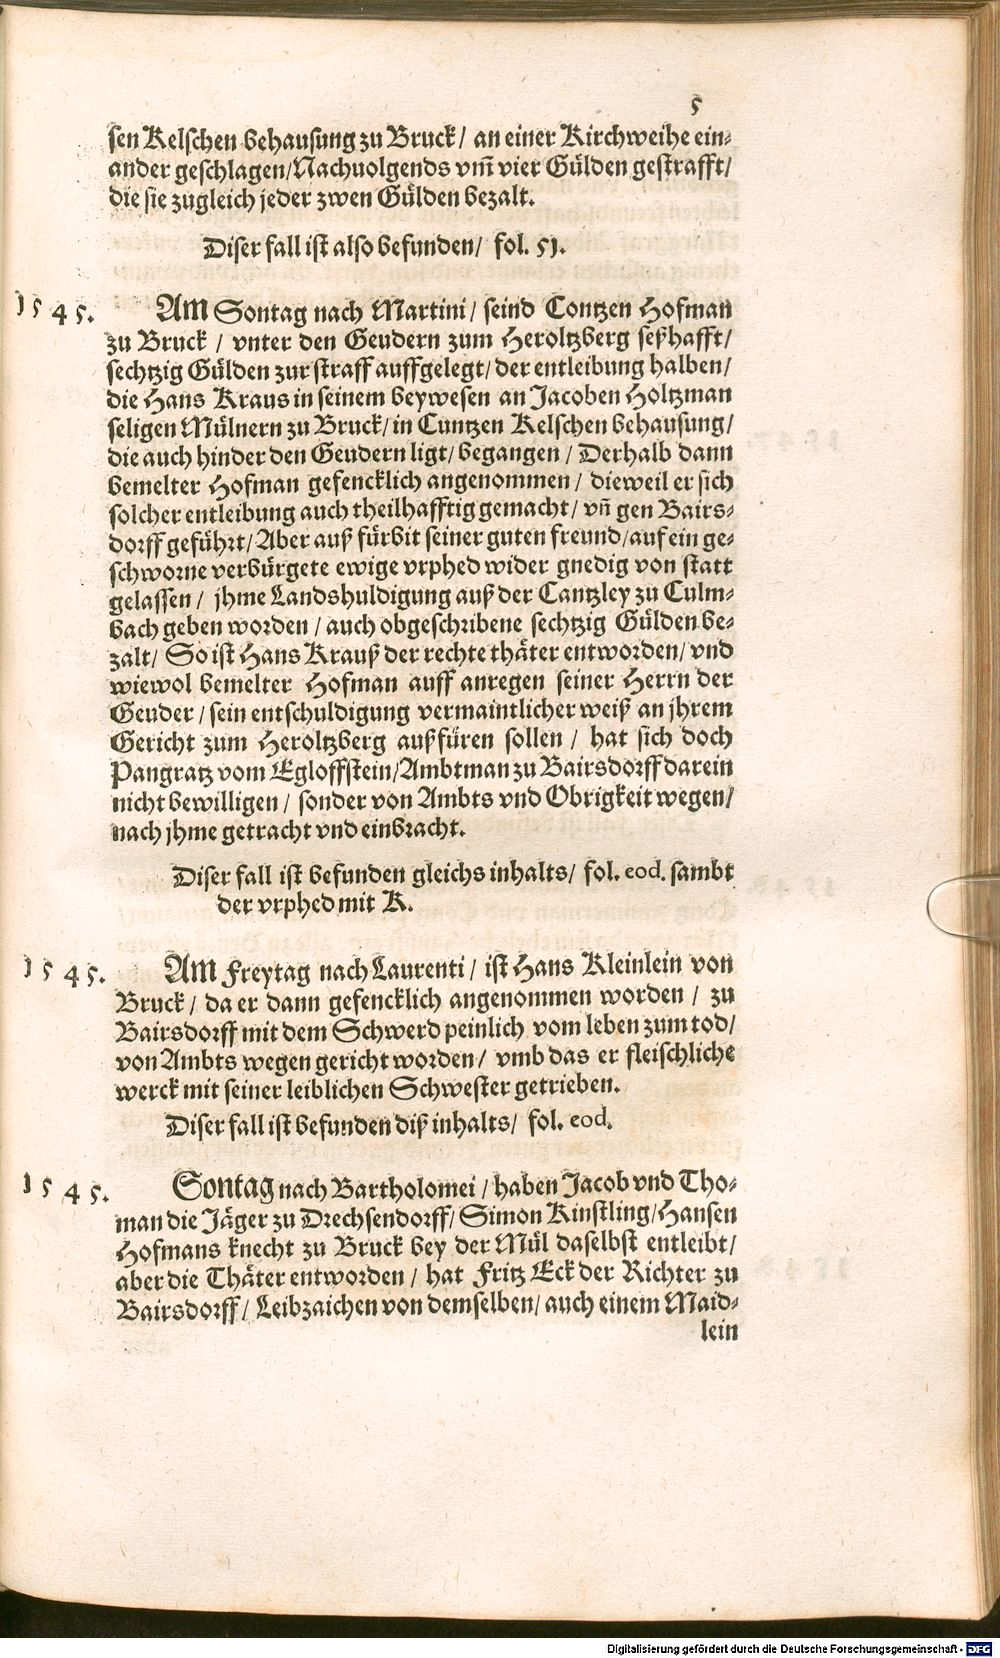 5
sen Kelschen behausung zu Bruck / an einer Kirchweihe ein-
ander geschlagen / Nachuolgends vm̄ vier Gülden gestrafft /
die sie zugleich jeder zwen Gülden bezalt.
Diser fall ist also befunden / fol. 51.
1545. Am Sontag nach Martini / seind Contzen Hofman
zu Bruck / vnter den Geudern zum Heroltzberg seßhafft /
sechtzig Gülden zur straff auffgelegt / der entleibung halben /
die Hans Kraus in seinem beywesen an Jacoben Holtzman
seligen Mülnern zu Bruck / in Cuntzen Kelschen behausung /
die auch hinder den Geudern ligt / begangen / Derhalb dann
bemelter Hofman gefencklich angenommen / dieweil er sich
solcher entleibung auch theilhafftig gemacht / vn̄ gen Bairs-
dorff geführt / Aber auß fürbit seiner guten freund / auf ein ge-
schworne verbürgete ewige vrphed wider gnedig von statt
gelassen / jhme Landshuldigung auß der Cantzley zu Culm-
bach geben worden / auch obgeschribene sechtzig Gülden be-
zalt / So ist Hans Krauß der rechte thäter entworden / vnd
wiewol bemelter Hofman auff anregen seiner Herrn der
Geuder / sein entschuldigung vermaintlicher weiß an jhrem
Gericht zum Heroltzberg außfüren sollen / hat sich doch
Pangratz vom Egloffstein / Ambtman zu Bairsdorff darein
nicht bewilligen / sonder von Ambts vnd Obrigkeit wegen /
nach jhme getracht vnd einbracht.
Diser fall ist befunden gleichs inhalts / fol. eod. sambt
der vrphed mit K.
1545. Am Freytag nach Laurenti / ist Hans Kleinlein von
Bruck / da er dann gefencklich angenommen worden / zu
Bairsdorff mit dem Schwerd peinlich vom leben zum tod /
von Ambts wegen gericht worden / vmb das er fleischliche
werck mit seiner leiblichen Schwester getrieben.
Diser fall ist befunden diß inhalts / fol. eod.
1545. Sontag nach Bartholomei / haben Jacob vnd Tho-
man die Jäger zu Drechsendorff / Simon Kinstling / Hansen
Hofmans knecht zu Bruck bey der Mül daselbst entleibt /
aber die Thäter entworden / hat Fritz Eck der Richter zu
Bairsdorff / Leibzaichen von demselben / auch einem Maid-
lein
Digitalisierung gefördert durch die Deutsche Forschungsgemeinschaft - DFG